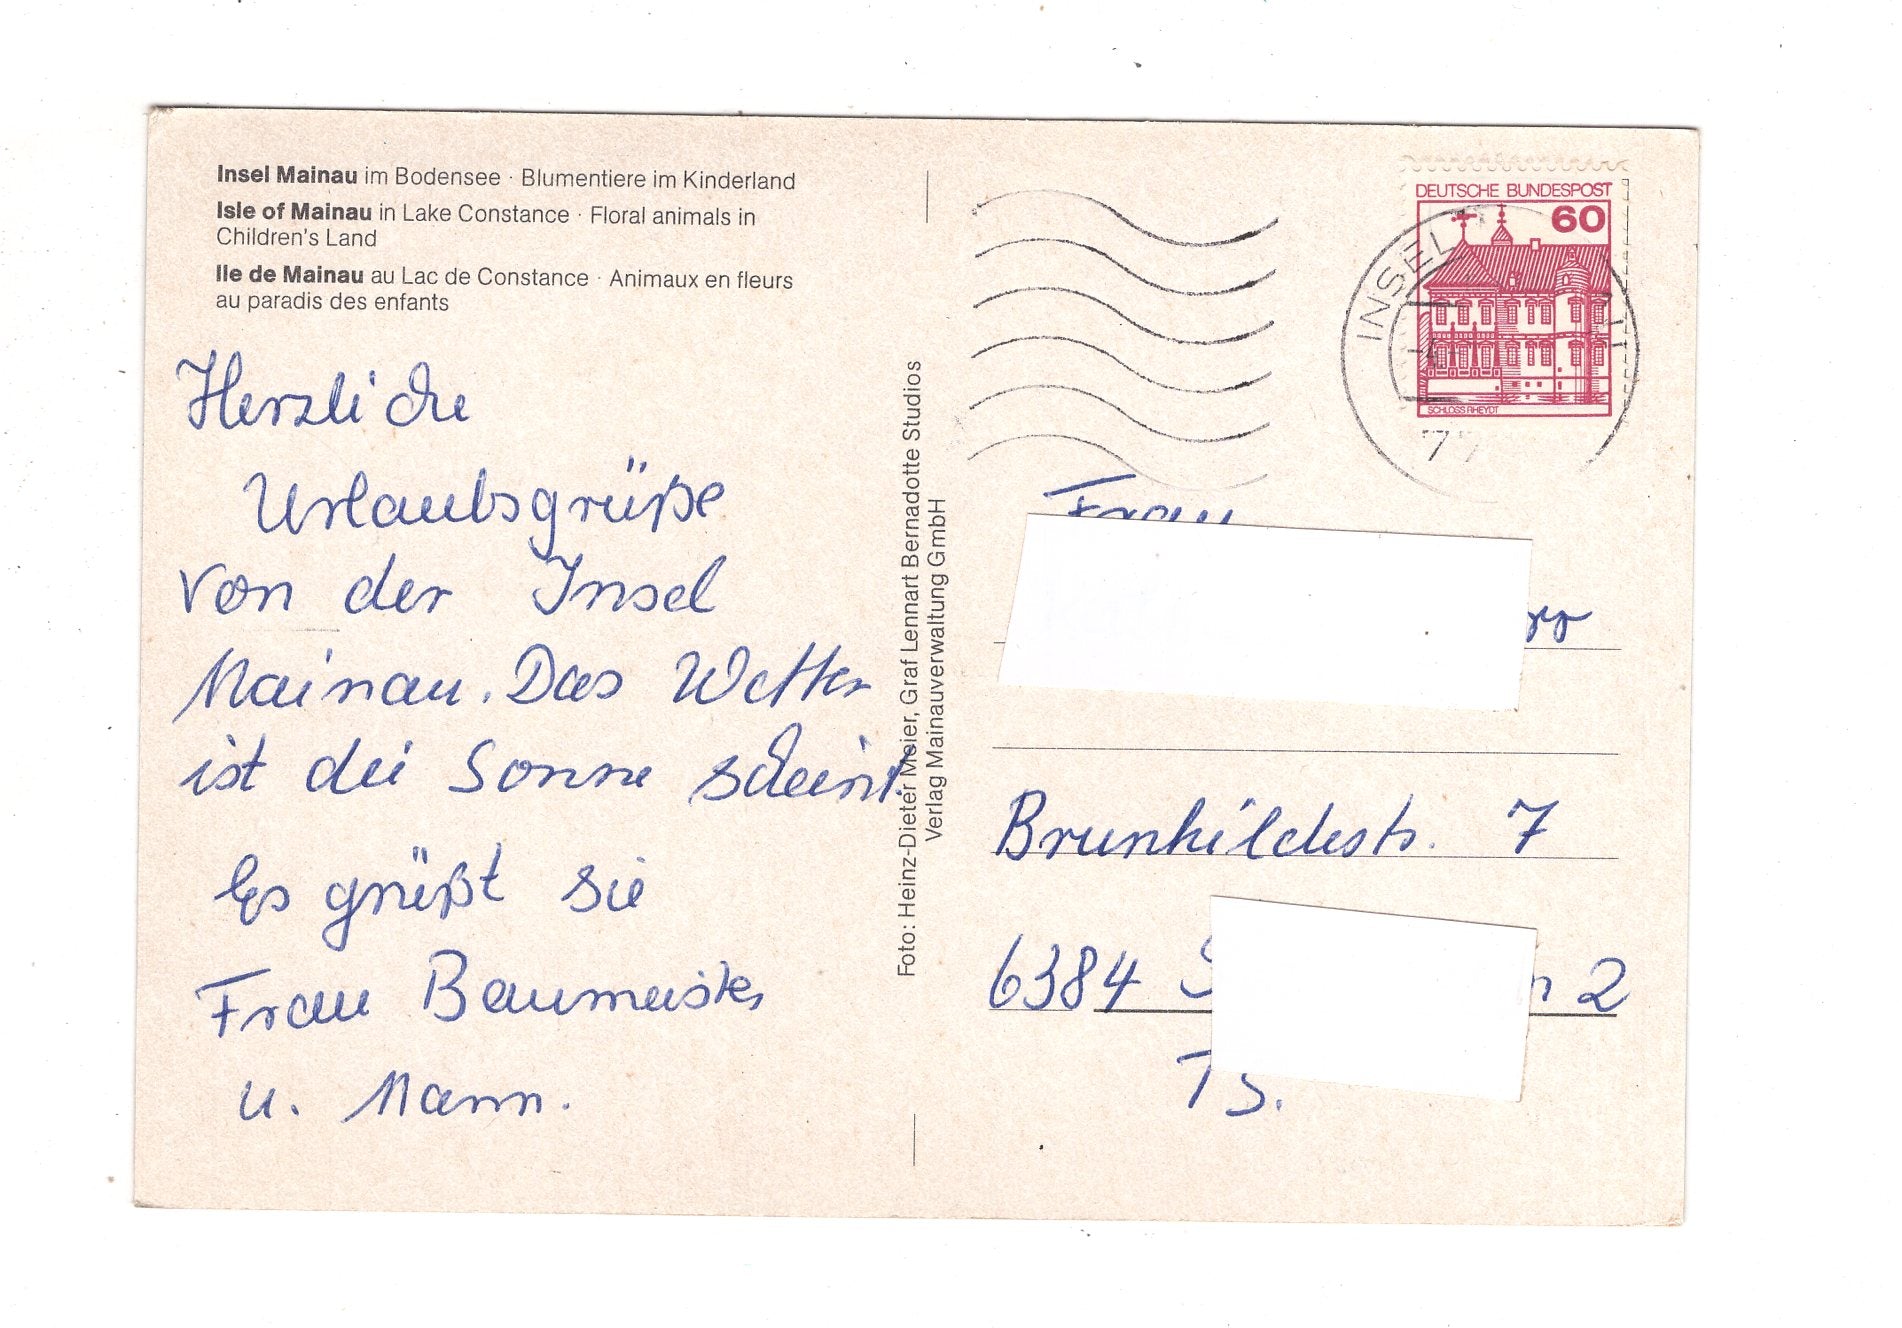 Insel Mainau im Bodensee · Blumentiere im Kinderland
Isle of Mainau in Lake Constance · Floral animals in
Children's Land
Ile de Mainau au Lac de Constance · Animaux en fleurs
au paradis des enfants
Herzliche
Urlaubsgrüße
von der Insel
Mainau. Das Wetter
ist dei Sonne scheint.
Es grüßt sie
Frau Baumeister
u. Mann.
Foto: Heinz-Dieter Meier, Graf Lennart Bernadotte Studios
Verlag Mainauverwaltung GmbH
DEUTSCHE BUNDESPOST
60
SCHLOSS RHEYDT
INSEL
Frau
Brunhildestr. 7
6384 2
TS.